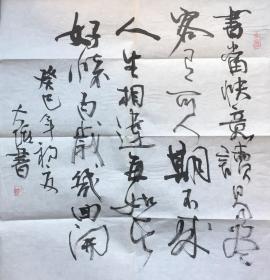 書當快意讀易盡
客有可人期不
人生相違每如此
好懷百歲幾回開
癸巳年初夏
書